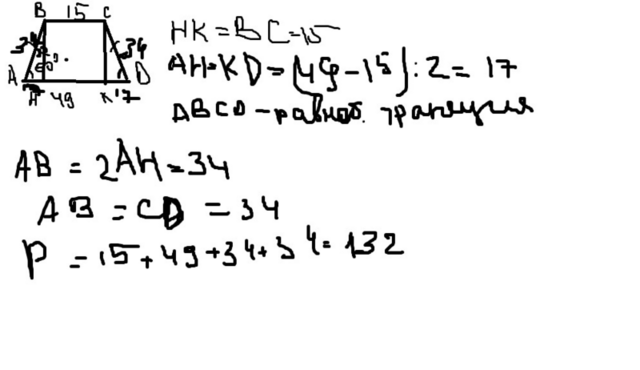 B 15 C
34 34
60°
A H 49 K 17 D
HK = BC = 15
AH = KD = (49 - 15) : 2 = 17
ABCD - равноб. трапеция
AB = 2AH = 34
AB = CD = 34
P = 15 + 49 + 34 + 34 = 132